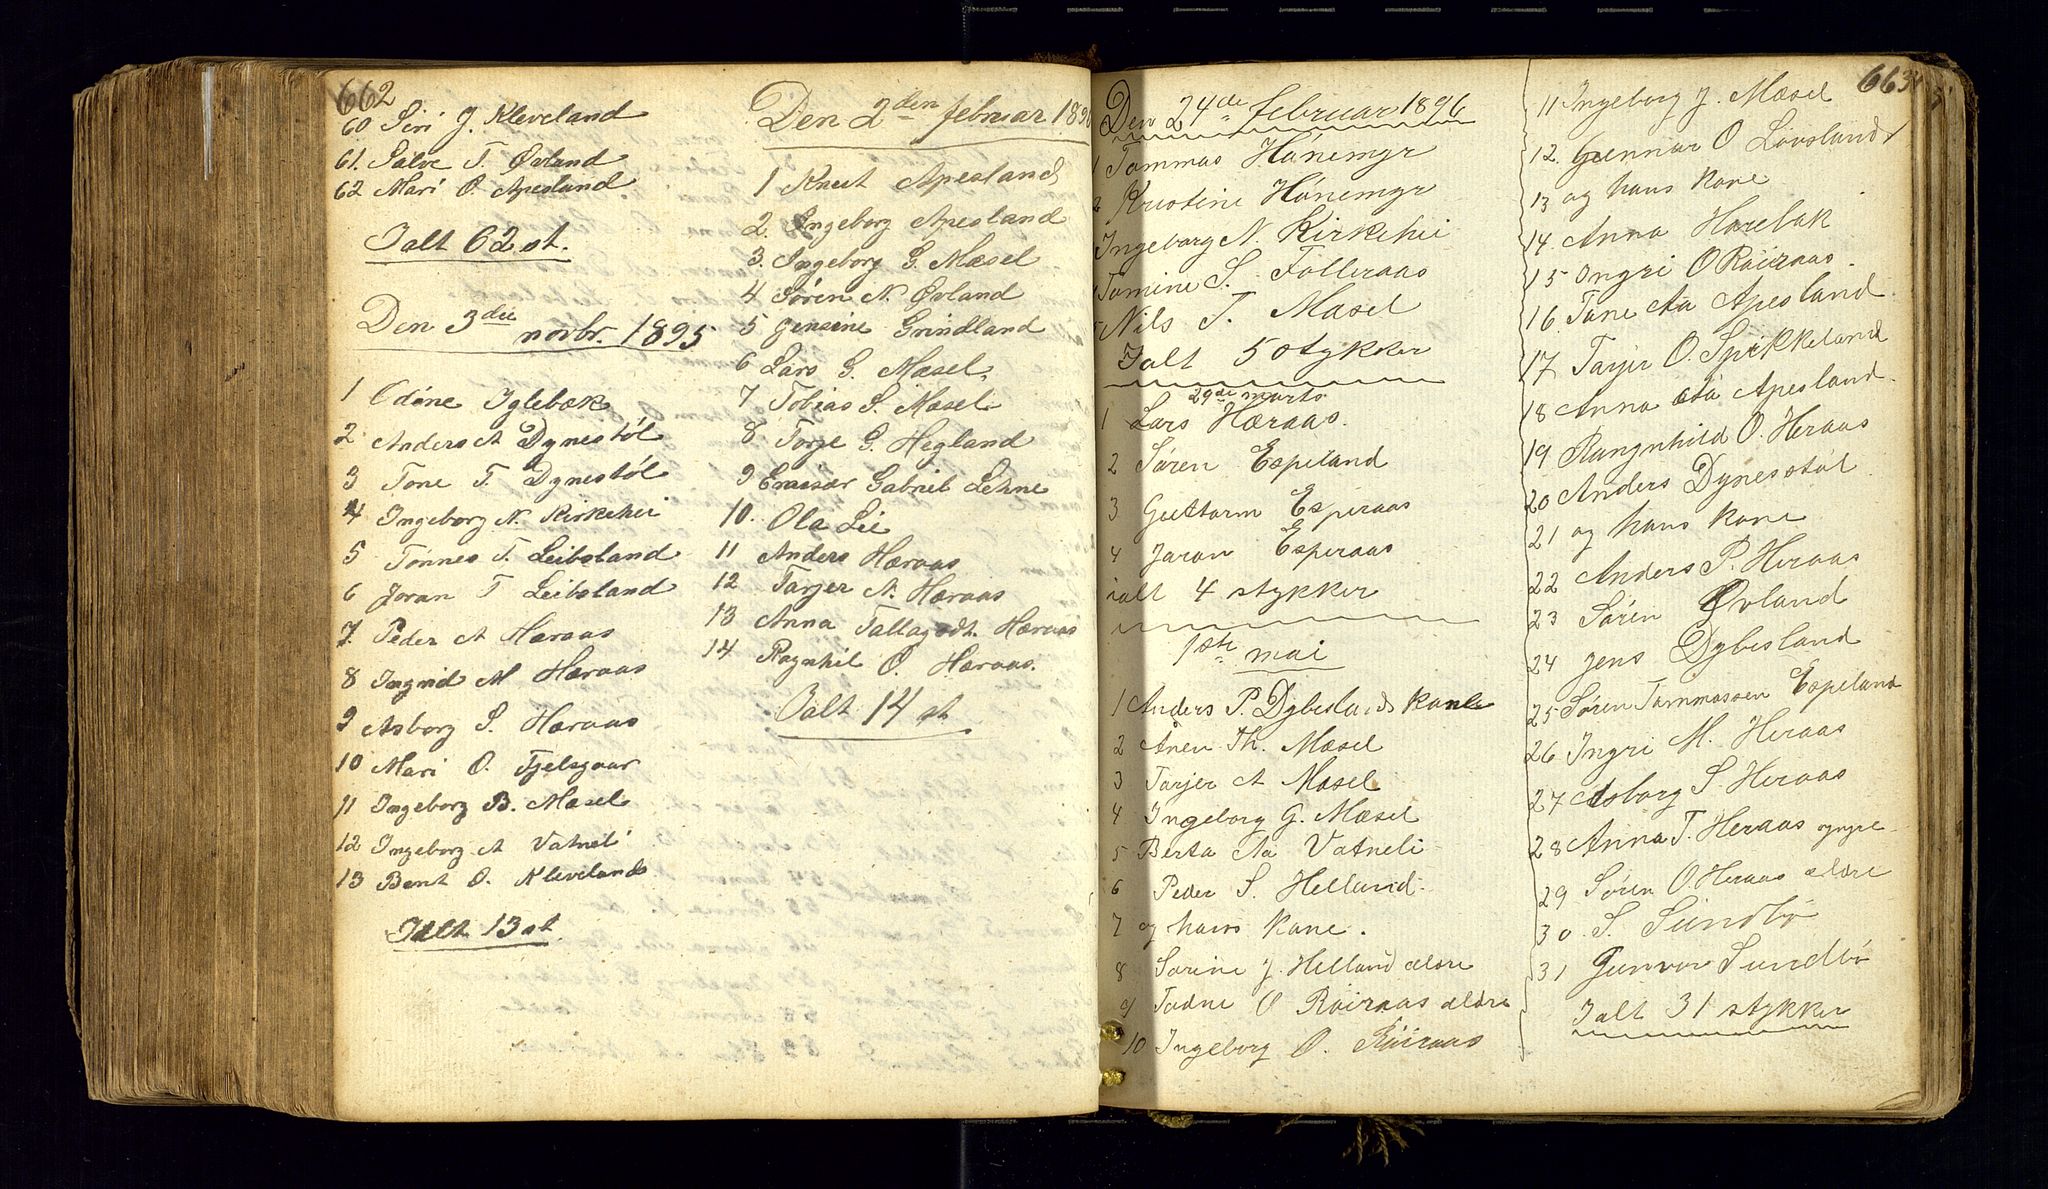 662
60 Siri J. Kleveland
61. Salve T. Øvland
62 Mari O. Apesland
Ialt 62 st.
Den 3die novbr. 1895
1 Odine Iglebæk
2 Anders A Dynestøl
3 Tone T. Dynestöl
4 Ingeborg N. Kirkehei
5 Tønnes T. Leibsland
6 Joran T Leibsland
7 Peder A Hæraas
8 Ingrid M Hæraas
9 Asborg S. Hæraas
10 Mari O. Fjelsgaar
11 Ingeborg B. Mæsel
12 Ingeborg A Vatneli
13 Bent O. Kleveland
Ialt 13 st.
Den 2den februar 189
1 Knut Apesland
2. Ingeborg Apesland
3. Ingeborg G. Mæsel
4 Søren N. Øvland
5 Jensine Grindland
6 Lars G. Mæsel,
7 Tobias S. Mæsel
8 Torje G. Hegland
9 Gabriel Lehne
10. Ola Lie
11 Anders Hæraas
12 Tarjer N. Hæraas
13 Anna Hæraas
14 Ragnhil O. Hæraas.
Ialt 14 st
663
Den 24de februar 1896
1 Tammas Hanemyr
2 Kristine Hanemyr
Ingeborg N. Kirkehei
Tomine S. Folleraas
5 Nils T. Mæsel
Ialt 5 stykker
29de marts
1 Lars Hæraas.
2 Søren Espeland
3 Guttorm Esperaas
4 Joran Esperaas
ialt 4 stykker
1ste mai
1 Anders P. Dybeslands kone
2 Anen Th. Mæsel
3 Tarjer A Mæsel
4 Ingeborg G. Mæsel
5 Berta Aa Vatneli
6 Peder S. Helland.
7 og hans kone.
8 Sorine J. Helland ældre
9 Tadne O Röiraas ældre
10 Ingeborg O. Röiraas
11 Ingeborg J. Mæsel
12. Gunnar O Lövsland
13 og hans kone
14. Anna Harebak
15 Ingri O Röiraas.
16. Tone Aa Apesland.
17 Tarjer O. Spikkeland
18 Anna Aa Apesland.
19 Rangnhild O. Heraas
20 Anders Dynesstøl
21 og hans kone
22 Anders P. Heraas
23 Søren Øvland
24 Jens Dybesland
25 Søren Tammassen Espeland
26 Ingri M. Heraas
27 Asborg S. Heraas
28 Anna T. Heraas yngre
29 Søren O. Heraas ældre
30. S. Sundbö
31 Gunvor Sundbö
Ialt 31 stykker